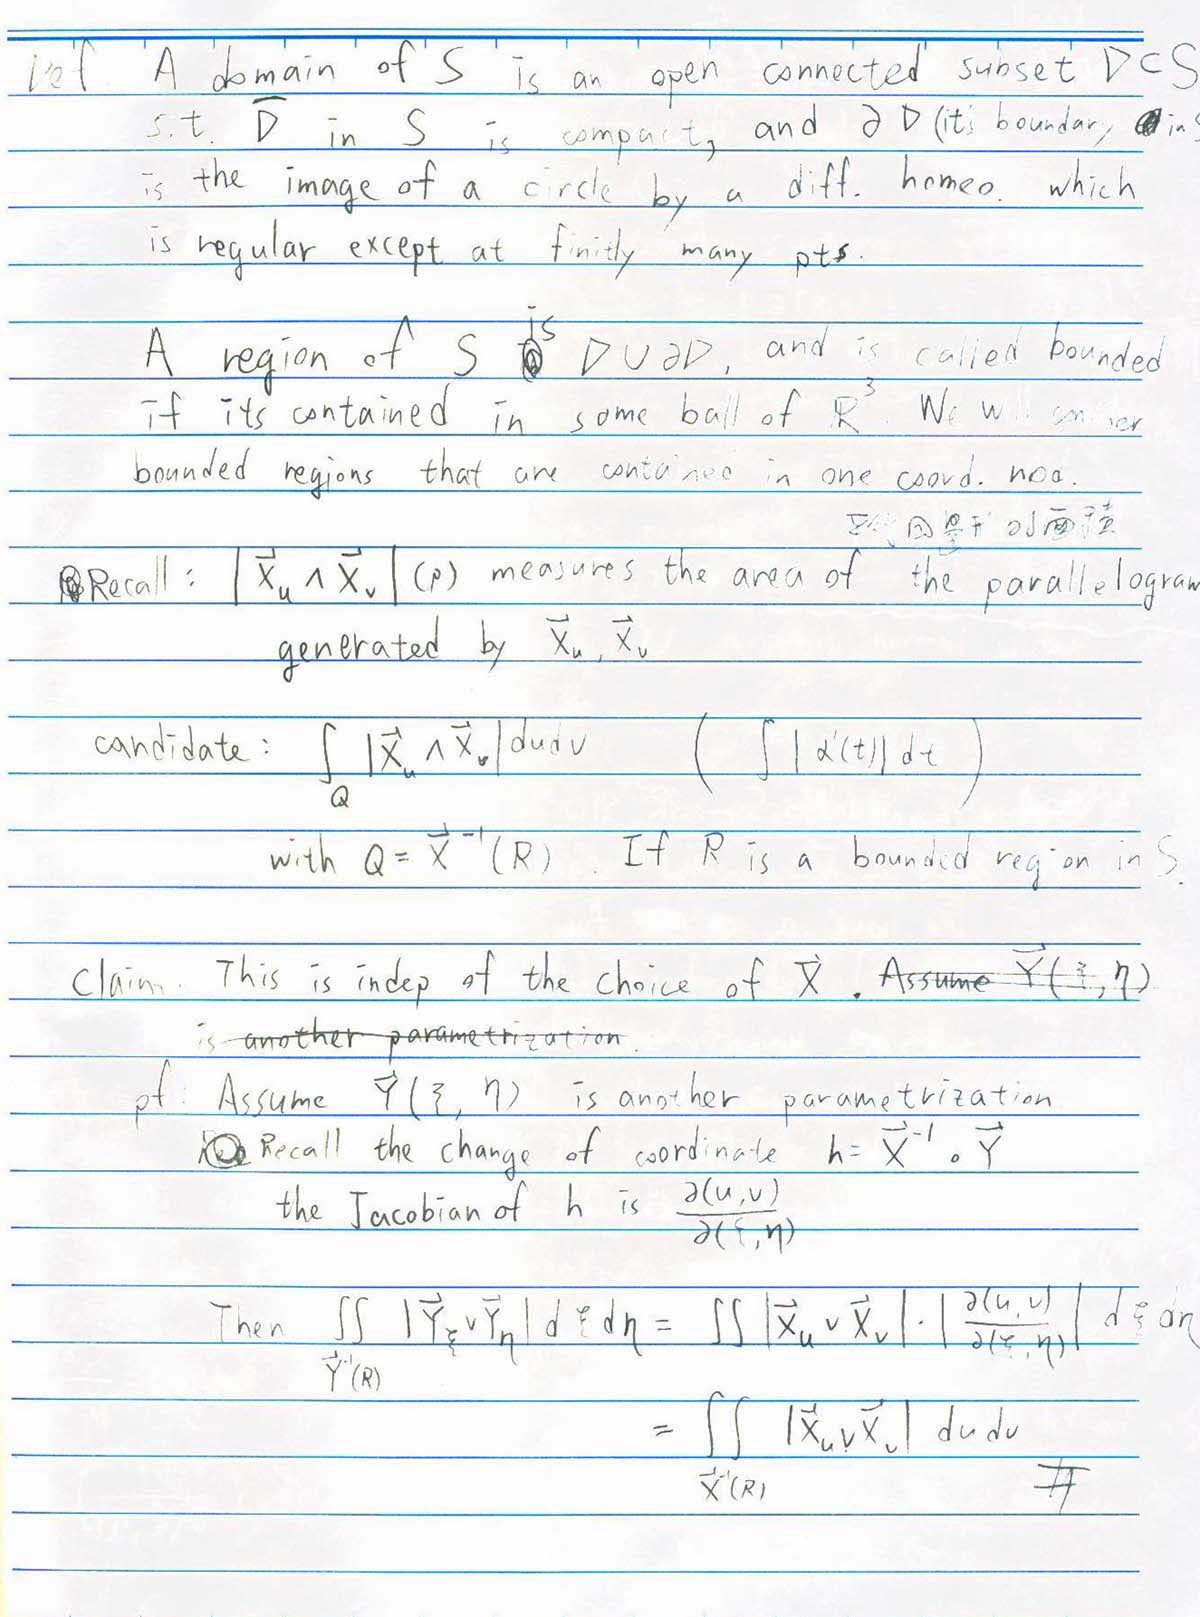 Def. A domain of S is an open connected subset D ⊂ S
s.t. D̅ in S is compact, and ∂D (it's boundary in S
is the image of a circle by a diff. homeo. which
is regular except at finitly many pts.
A region of S is D ∪ ∂D, and is called bounded
if its contained in some ball of ℝ³. We will consider
bounded regions that are contained in one coord. nbd.
Recall : |X⃗_u ∧ X⃗_v| (p) measures the area of the parallelogram
generated by X⃗_u, X⃗_v
candidate : ∫_Q |X⃗_u ∧ X⃗_v| du dv ( ∫ |α'(t)| dt )
with Q = X⃗⁻¹(R). If R is a bounded region in S.
Claim. This is indep of the choice of X⃗. Assume Y⃗(ξ, η)
is another parametrization.
pf: Assume Y⃗(ξ, η) is another parametrization
Recall the change of coordinate h = X⃗⁻¹ ∘ Y⃗
the Jacobian of h is ∂(u,v)/∂(ξ,η)
Then ∬_{Y⃗⁻¹(R)} |Y⃗_ξ ∨ Y⃗_η| dξ dη = ∬ |X⃗_u ∨ X⃗_v| · |∂(u,v)/∂(ξ,η)| dξ dη
= ∬_{X⃗⁻¹(R)} |X⃗_u ∨ X⃗_v| du dv #